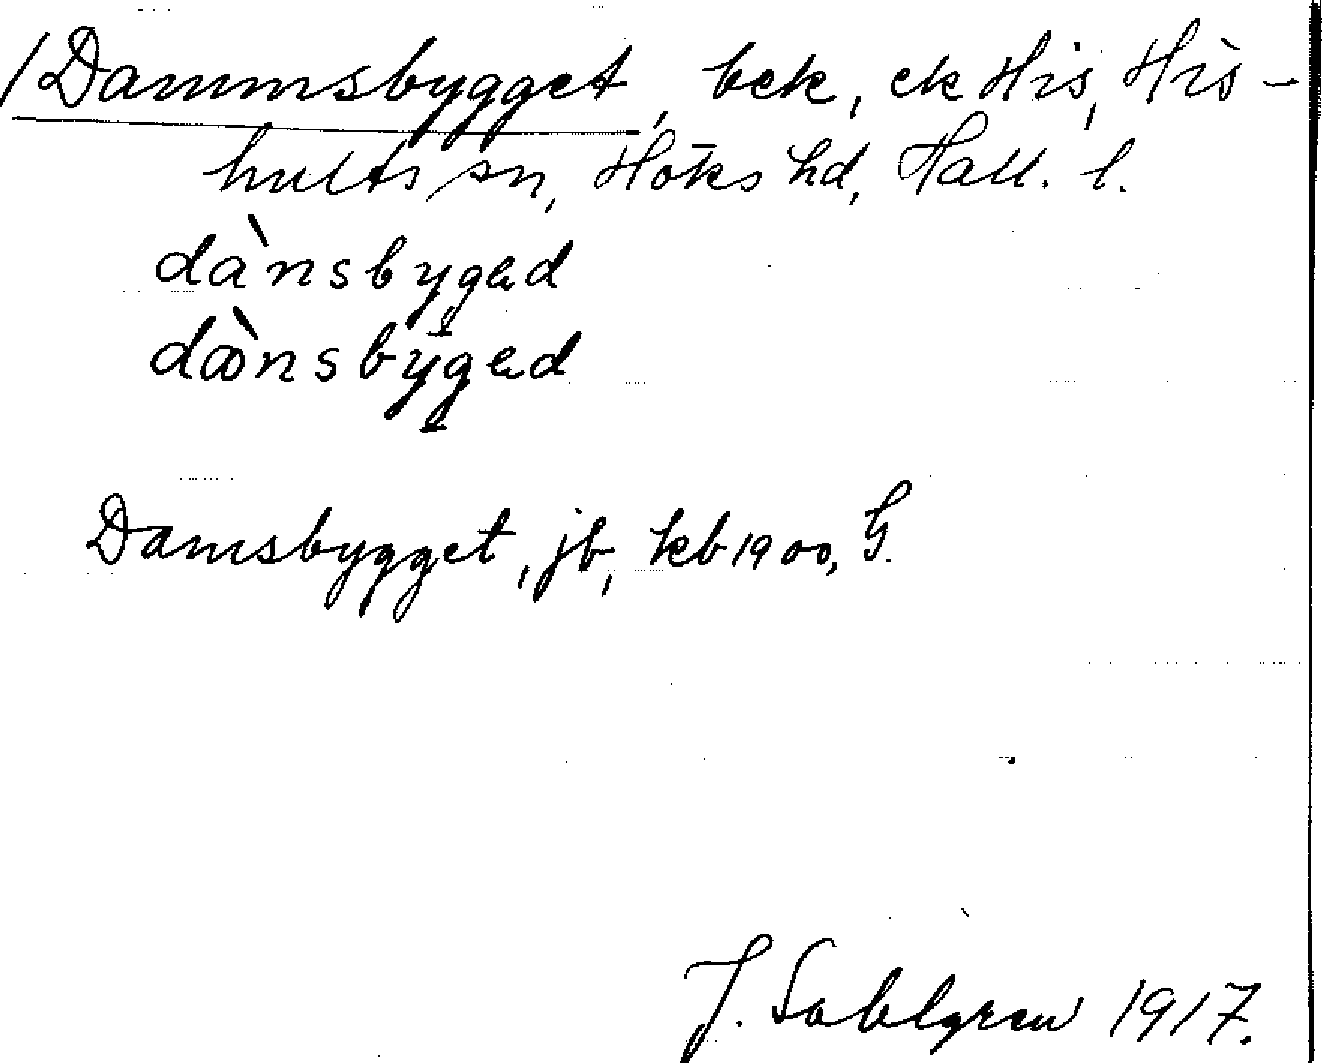 /Dammsbygget, bek, ek His, His-
hults sn, Höks hd, Hall. l.
dànsbygəd
dànsbygəd
Damsbygget, jb, kb 1900, G.
J. Sahlgren 1917.